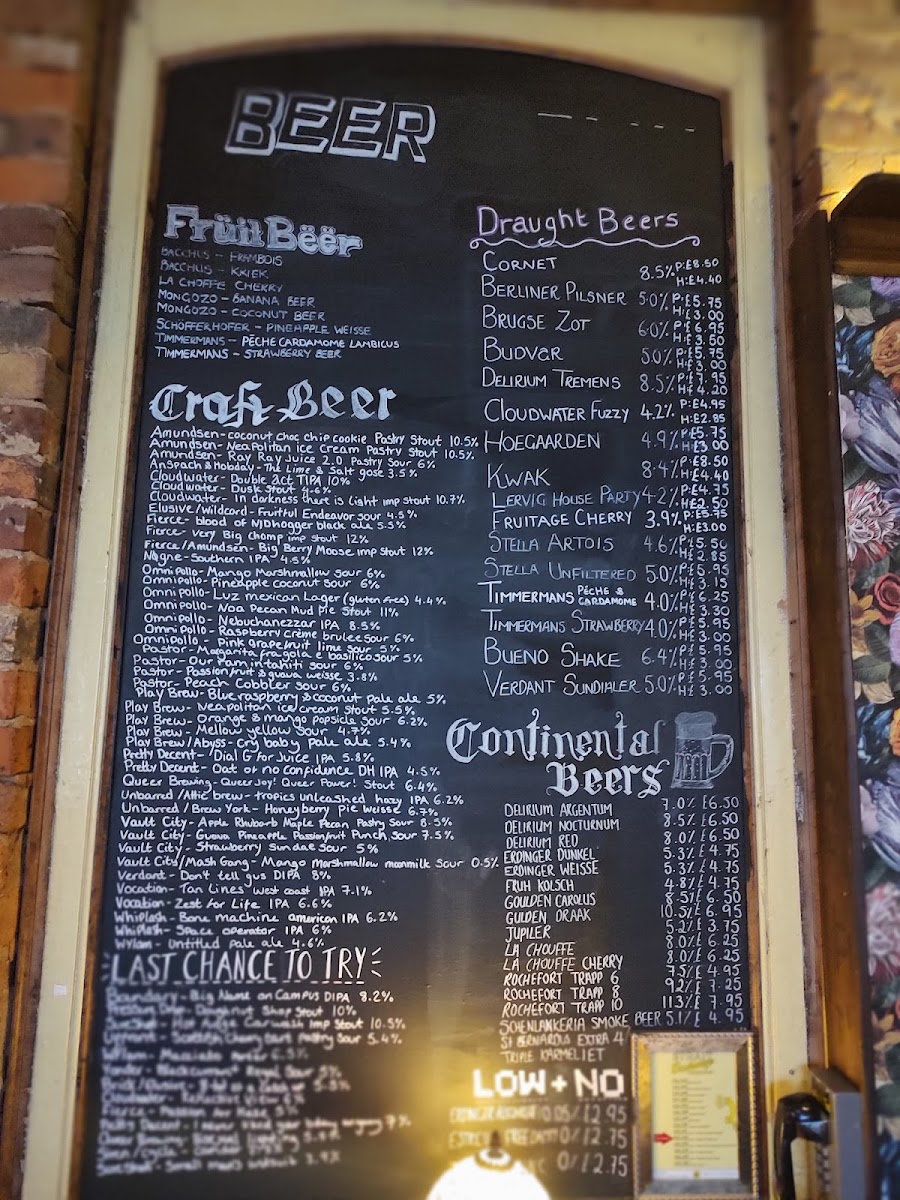 BEER
Früit Bëër
BACCHUS - FRAMBOIS
BACCHUS - KRIEK
LA CHOFFE CHERRY
MONGOZO - BANANA BEER
MONGOZO - COCONUT BEER
SCHOFFERHOFER - PINEAPPLE WEISSE
TIMMERMANS - PÊCHE CARDAMOME LAMBICUS
TIMMERMANS - STRAWBERRY BEER
Craft Beer
Amundsen - coconut choc chip cookie Pastry Stout 10.5%
Amundsen - Neapolitan ice Cream Pastry Stout 10.5%
Amundsen - Ray Ray Juice 2.0 Pastry Sour 6%
Anspach & Hobday - The Lime & Salt gose 3.5%
Cloudwater - Double Act TIPA 10%
Cloudwater - Dusk Stout 4.6%
Cloudwater - In darkness there is Light imp stout 10.7%
Elusive/Wildcard - Fruitful Endeavor sour 4.5%
Fierce - blood of NIDhogger black ale 5.5%
Fierce very Big Chomp imp stout 12%
Fierce/Amundsen - Big Berry Moose imp Stout 12%
Nøgne - Southern IPA 4.5%
Omnipollo - Mango Marshmallow Sour 6%
Omnipollo - Pineapple coconut sour 6%
Omnipollo - Luz mexican Lager (gluten free) 4.4%
Omnipollo - Noa Pecan Mud Pie Stout 11%
Omnipollo - Nebuchanezzar IPA 8.5%
Omnipollo - Raspberry crème brulee sour 6%
Omnipollo - Pink grapefruit lime sour 5%
Pastor - Margarita fragola e basilico sour 5%
Pastor - Our ram in tahiti sour 6%
Pastor - Passionfruit & guava weisse 3.8%
Pastor - Peach Cobbler sour 6%
Play Brew - Blue raspberry & coconut pale ale 5%
Play Brew - Neapolitan ice cream Stout 5.5%
Play Brew - Orange & mango popsicle Sour 6.2%
Play Brew - Mellow yellow Sour 4.7%
Play Brew/Abyss - Cry baby pale ale 5.4%
Pretty Decent - /Dial G for Juice IPA 5.8%
Pretty Decent - Oat of no Confidence DH IPA 4.5%
Queer Brewing - Queer Joy! Queer Power! Stout 6.4%
Unbarred/Attic brew - tropics unleashed hazy IPA 6.2%
Unbarred/Brew York - Honeyberry pie weisse 6.7%
Vault City - Apple Rhubarb Maple Pecan Pastry Sour 8.5%
Vault City - Guava Pineapple Passionfruit Punch Sour 7.5%
Vault City - Strawberry Sundae Sour 5%
Vault City/Mash Gang - Mango marshmallow moonmilk Sour 0.5%
Verdant - Don't tell gus DIPA 8%
Vocation - Tan Lines west coast IPA 7.1%
Vocation - Zest for Life IPA 6.6%
Whiplash - Bone machine american IPA 6.2%
Whiplash - Space operator IPA 6%
Wylam - Untitled pale ale 4.6%
LAST CHANCE TO TRY
Big Name on Campus DIPA 8.2%
Doughnut Shop Stout 10%
Carwash Imp Stout 10.5%
Pastry Sour 5.4%
Draught Beers
CORNET 8.5% P:£8.50 H:£4.40
BERLINER PILSNER 5.0% P:£5.75 H:£3.00
BRUGSE ZOT 6.0% P:£6.95 H:£3.50
BUDVAR 5.0% P:£5.75 H:£3.00
DELIRIUM TREMENS 8.5% P:£7.95 H:£4.20
CLOUDWATER FUZZY 4.2% P:£4.95 H:£2.85
HOEGAARDEN 4.9% P:£5.75 H:£3.00
KWAK 8.4% P:£8.50 H:£4.40
LERVIG HOUSE PARTY 4.2% P:£4.75 H:£2.50
FRUITAGE CHERRY 3.9% P:£5.75 H:£3.00
STELLA ARTOIS 4.6% P:£5.50 H:£2.85
STELLA UNFILTERED 5.0% P:£5.95 H:£3.15
TIMMERMANS PÊCHE & CARDAMOME 4.0% P:£6.25 H:£3.30
TIMMERMANS STRAWBERRY 4.0% P:£5.95 H:£3.00
BUENO SHAKE 6.4% P:£5.95 H:£3.00
VERDANT SUNDIALER 5.0% P:£5.95 H:£3.00
Continental Beers
DELIRIUM ARGENTUM 7.0% £6.50
DELIRIUM NOCTURNUM 8.5% £6.50
DELIRIUM RED 8.0% £6.50
ERDINGER DUNKEL 5.3% £4.75
ERDINGER WEISSE 5.3% £4.75
FRUH KOLSCH 4.8% £4.75
GOULDEN CAROLUS 8.5% £6.50
GULDEN DRAAK 10.5% £6.95
JUPILER 5.2% £3.75
LA CHOUFFE 8.0% £6.25
LA CHOUFFE CHERRY 8.0% £6.25
ROCHEFORT TRAPP 6 7.5% £4.95
ROCHEFORT TRAPP 8 9.2% £7.25
ROCHEFORT TRAPP 10 11.3% £7.95
SCHENLANKERIA SMOKE BEER 5.1% £4.95
ST BERNARDUS EXTRA 4
TRIPLE KARMELIET
LOW + NO
0.05/£2.95
0%/£2.75
0/£2.75